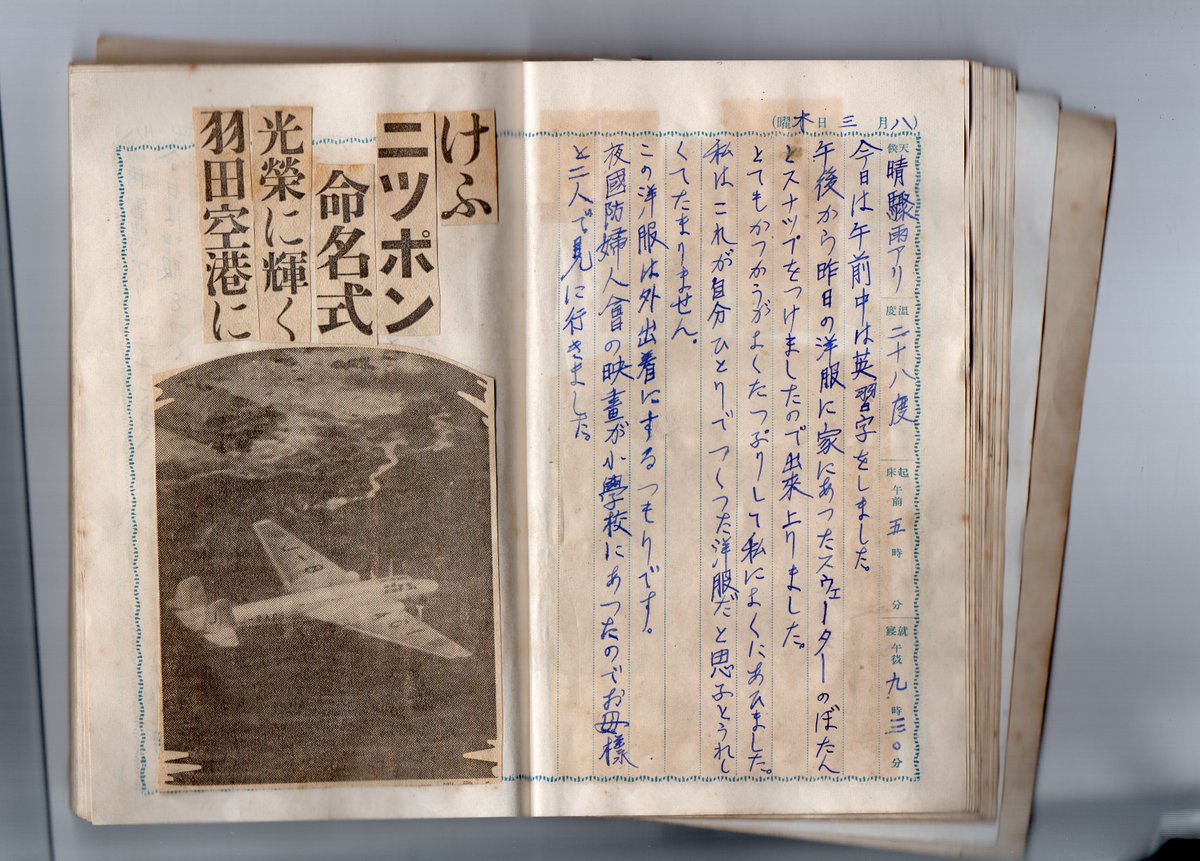 八月三日(木曜)
天候 晴驟雨アリ 溫度 二十八度 起床 午前五時 分 就寢 午後九時三〇分
今日は午前中は英習字をしました。
午後から昨日の洋服に家にあつたスウェーターのぼたん
とスナツプをつけましたので出來上りました。
とてもかつかうがよくたつぷりして私によくにあひました。
私はこれが自分ひとりでつくつた洋服だと思ふとうれし
くてたまりません。
この洋服は外出着にするつもりです。
夜國防婦人會の映畫が小學校にあつたのでお母樣
と二人で見に行きました。
けふ
ニツポン
命名式
光榮に輝く
羽田空港に